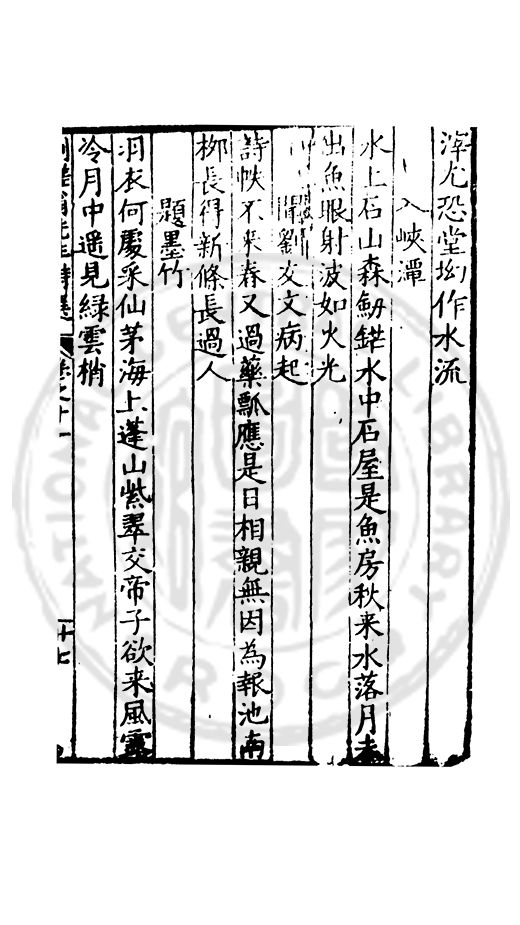 滓尤恐堂坳作水流
入峽潭
水上石山森劒鋩水中石屋是魚房秋来水落月未
出魚眼射波如火光
聞劉文文病起
詩帙不来春又過藥瓢應是日相親無因為報池南
栁長得新條長過人
題墨竹
羽衣何處采仙茅海上蓬山紫翠交帝子欲来風露
冷月中遥見緑雲梢
十七